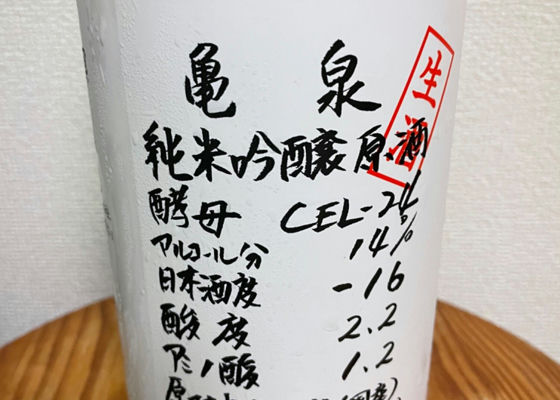 亀 泉
生酒
純米吟醸原酒
酵母 CEL-24
アルコール分 14%
日本酒度 -16
酸度 2.2
アミノ酸 1.2
(国産)